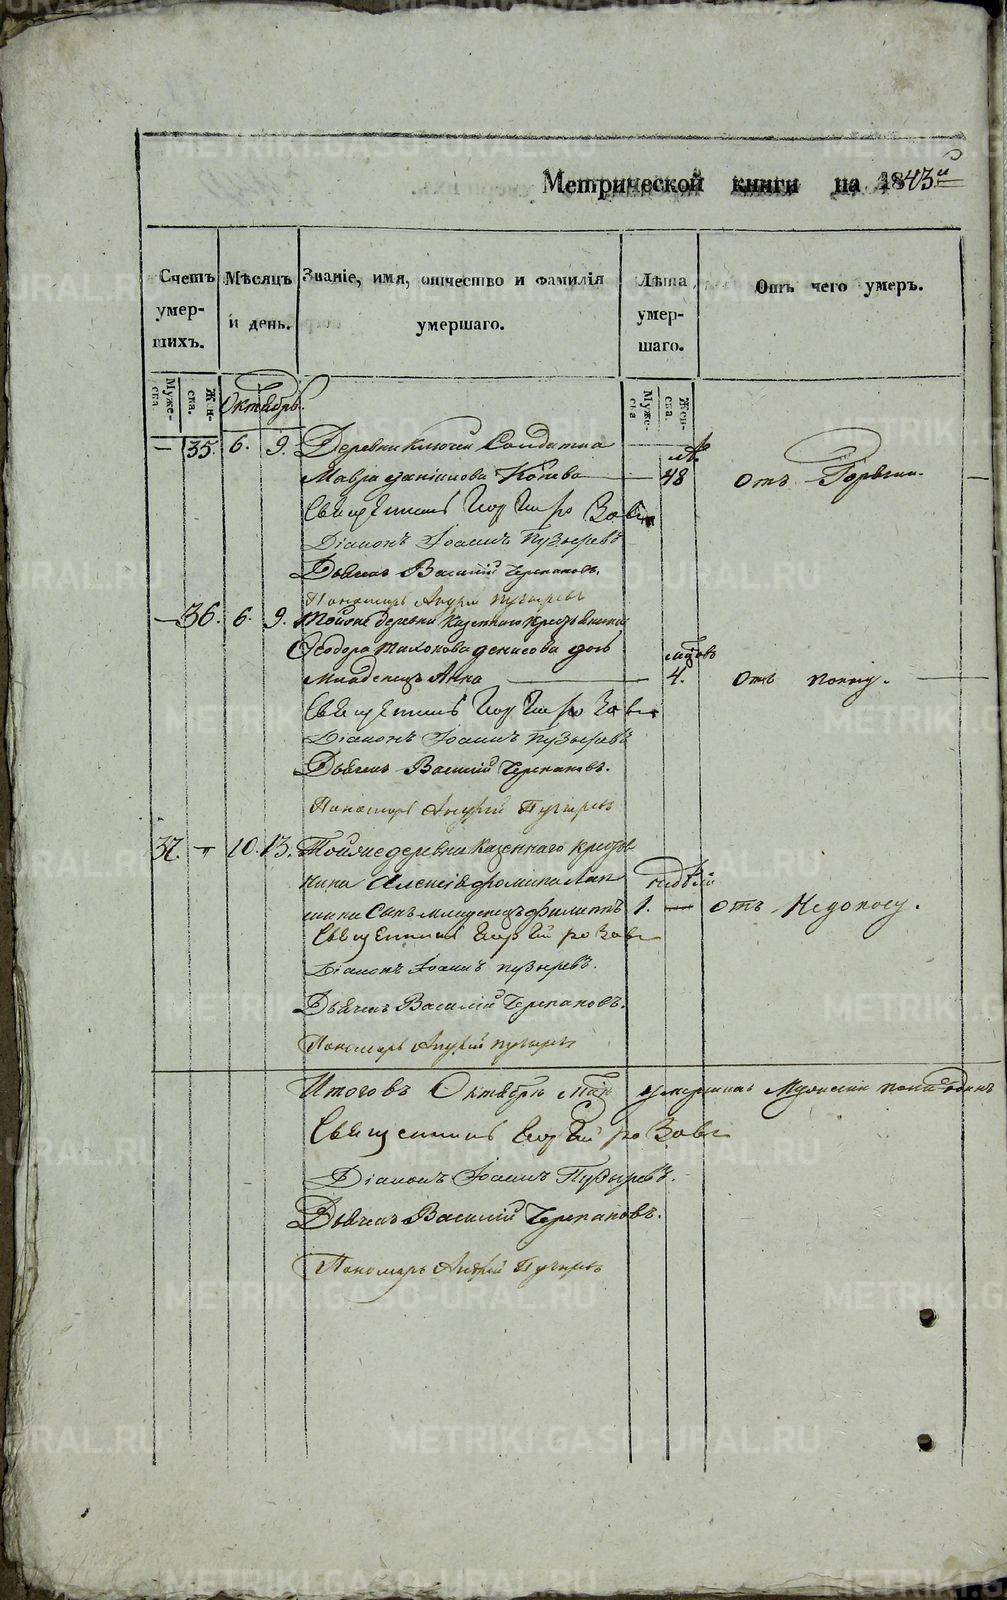 Метрической книги на 1843й
Счетъ умер-шихъ.
Мѣсяцъ и день.
Званіе, имя, отчество и фамилія умершаго.
Лѣта умер-шаго.
Отъ чего умеръ.
Муже-ска
Жен-ска.
Октябрь.
Муже-ска
Жен-ска.
— 35. 6. 9. Деревни Ключей Солдатка
Мавра 48 Отъ Горячки.
Священникъ Георгій Розовъ
Діаконъ Іоаннъ Пузыревъ
Дьячекъ Василій Черепановъ.
Пономарь Андрей Пузыревъ
— 36. 6. 9. Тойже деревни Казеннаго Крестьянина
Ѳеодора Денисова дочь
Младенецъ Анна 4. Отъ поносу.
Священникъ Георгій Розовъ
Діаконъ Іоаннъ Пузыревъ
Дьячекъ Василій Черепановъ.
Пономарь Андрей Пузыревъ
37. — 10. 13. Тойже деревни Казеннаго Кресть-
нина Алексія Лап- недѣли
шина Сынъ младенецъ Филиппъ 1. — Отъ Недоносу.
Священникъ Георгій Розовъ
Діаконъ Іоаннъ Пузыревъ.
Дьячекъ Василій Черепановъ.
Пономарь Андрей Пузыревъ
Итого въ Октябрѣ умершихъ Мужеска пола одинъ
Священникъ Георгій Розовъ
Діаконъ Іоаннъ Пузыревъ.
Дьячекъ Василій Черепановъ.
Пономарь Андрей Пузыревъ
METRIKI.GASO-URAL.RU